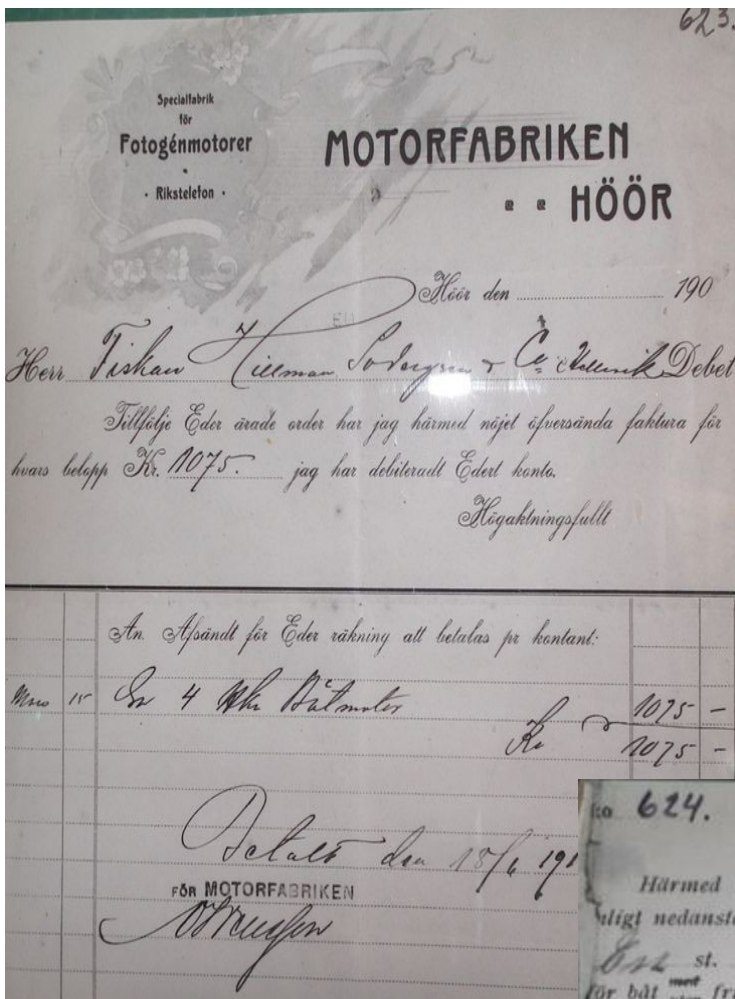 623.
Specialfabrik
för
Fotogénmotorer
· Rikstelefon ·
MOTORFABRIKEN
HÖÖR
Höör den 190
Herr Fiskau Hillman & Co Debet
Tillfölje Eder ärade order har jag härmed nöjet öfversända faktura för
hvars belopp Kr. 1075. jag har debiteradt Edert konto.
Högaktningsfullt
An. Afsändt för Eder räkning att betalas pr kontant:
15 En 4 Hkr Båtmotor 1075 –
Kr 1075 –
Betalt den 18/6 191
FÖR MOTORFABRIKEN
624.
Härmed
nligt nedanst
st.
för båt fr